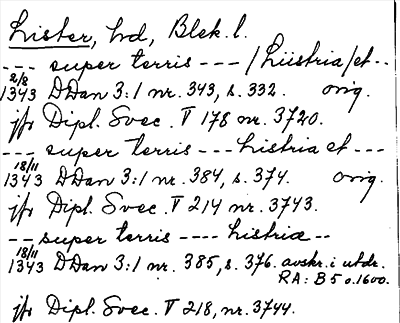 Lister, hd, Blek. l.
--- super terris --- /Liistria/et ..
2/8
1343 DDan 3:1 nr. 343, s. 332. orig.
jfr Dipl. Svec. V 178 nr. 3720.
--- super terris --- Listria et ---
18/11
1343 DDan 3:1 nr. 384, s. 374. orig.
jfr Dipl. Svec. V 214 nr. 3743.
-- super terris ---- Listriæ --
18/11
1343 DDan 3:1 nr. 385, s. 376. avskr. i utdr.
RA: B 5 o. 1600.
jfr Dipl. Svec. V 218, nr. 3744.